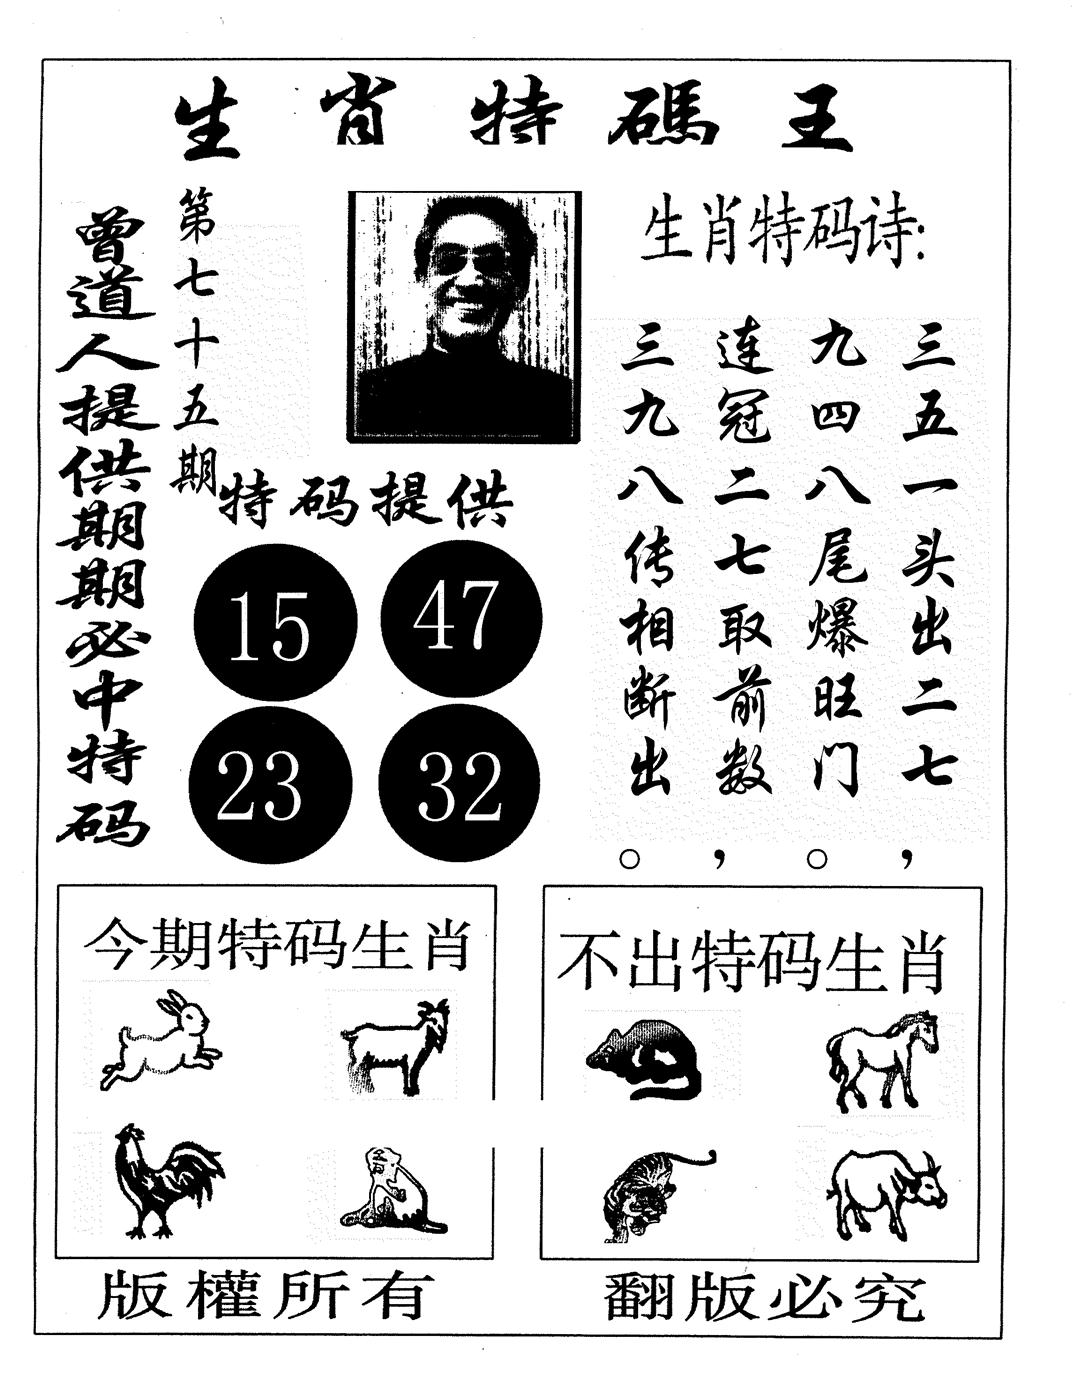 生肖特碼王
曾道人提供期期必中特码
第七十五期
特码提供
15 47
23 32
生肖特码诗:
三五一头出二七,
九四八尾爆旺门。
连冠二七取前数,
三九八传相断出。
今期特码生肖
不出特码生肖
版權所有
翻版必究